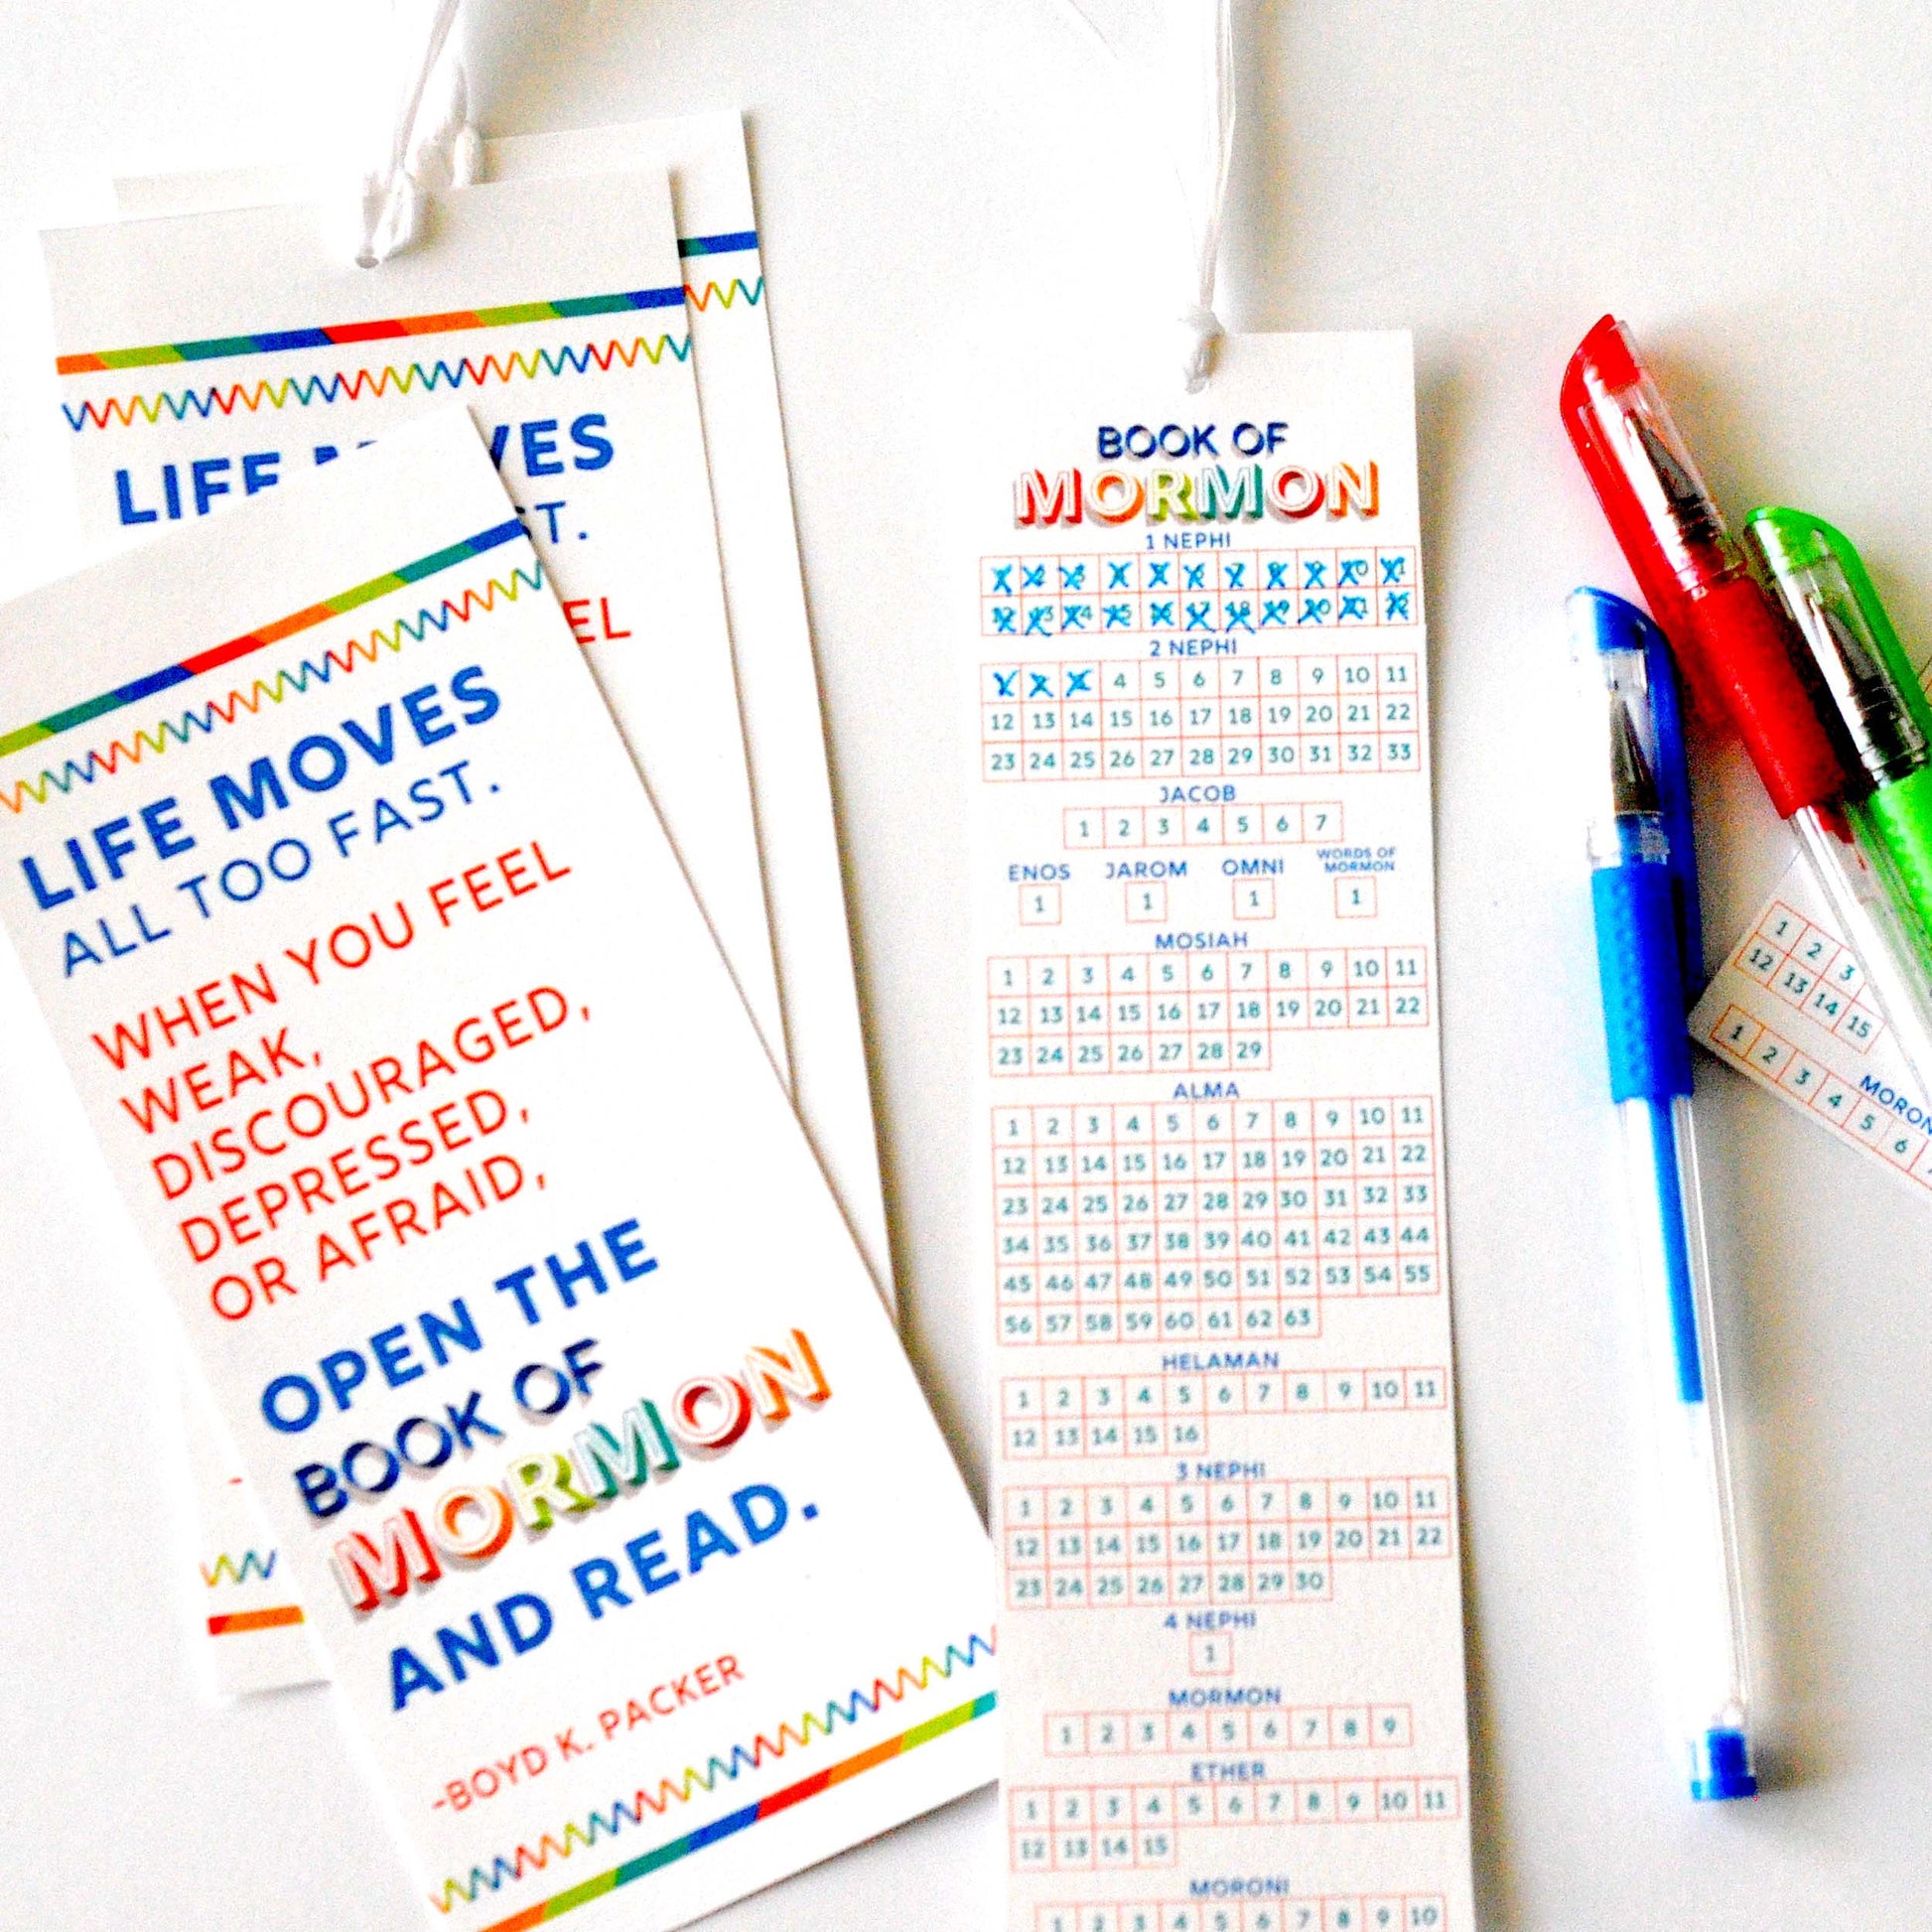 LIFE
VES
ST.
EL
LIFE MOVES
ALL TOO FAST.
WHEN YOU FEEL
WEAK,
DISCOURAGED,
DEPRESSED,
OR AFRAID,
OPEN THE
BOOK OF
MORMON
AND READ.
-BOYD K. PACKER
BOOK OF
MORMON
1 NEPHI
2 NEPHI
4 5 6 7 8 9 10 11
12 13 14 15 16 17 18 19 20 21 22
23 24 25 26 27 28 29 30 31 32 33
JACOB
1 2 3 4 5 6 7
ENOS JAROM OMNI WORDS OF MORMON
1 1 1 1
MOSIAH
1 2 3 4 5 6 7 8 9 10 11
12 13 14 15 16 17 18 19 20 21 22
23 24 25 26 27 28 29
ALMA
1 2 3 4 5 6 7 8 9 10 11
12 13 14 15 16 17 18 19 20 21 22
23 24 25 26 27 28 29 30 31 32 33
34 35 36 37 38 39 40 41 42 43 44
45 46 47 48 49 50 51 52 53 54 55
56 57 58 59 60 61 62 63
HELAMAN
1 2 3 4 5 6 7 8 9 10 11
12 13 14 15 16
3 NEPHI
1 2 3 4 5 6 7 8 9 10 11
12 13 14 15 16 17 18 19 20 21 22
23 24 25 26 27 28 29 30
4 NEPHI
1
MORMON
1 2 3 4 5 6 7 8 9
ETHER
1 2 3 4 5 6 7 8 9 10 11
12 13 14 15
MORONI
1 2 3 4 5 6 7 8 9 10
1 2 3
12 13 14 15
MORON
1 2 3 4 5 6